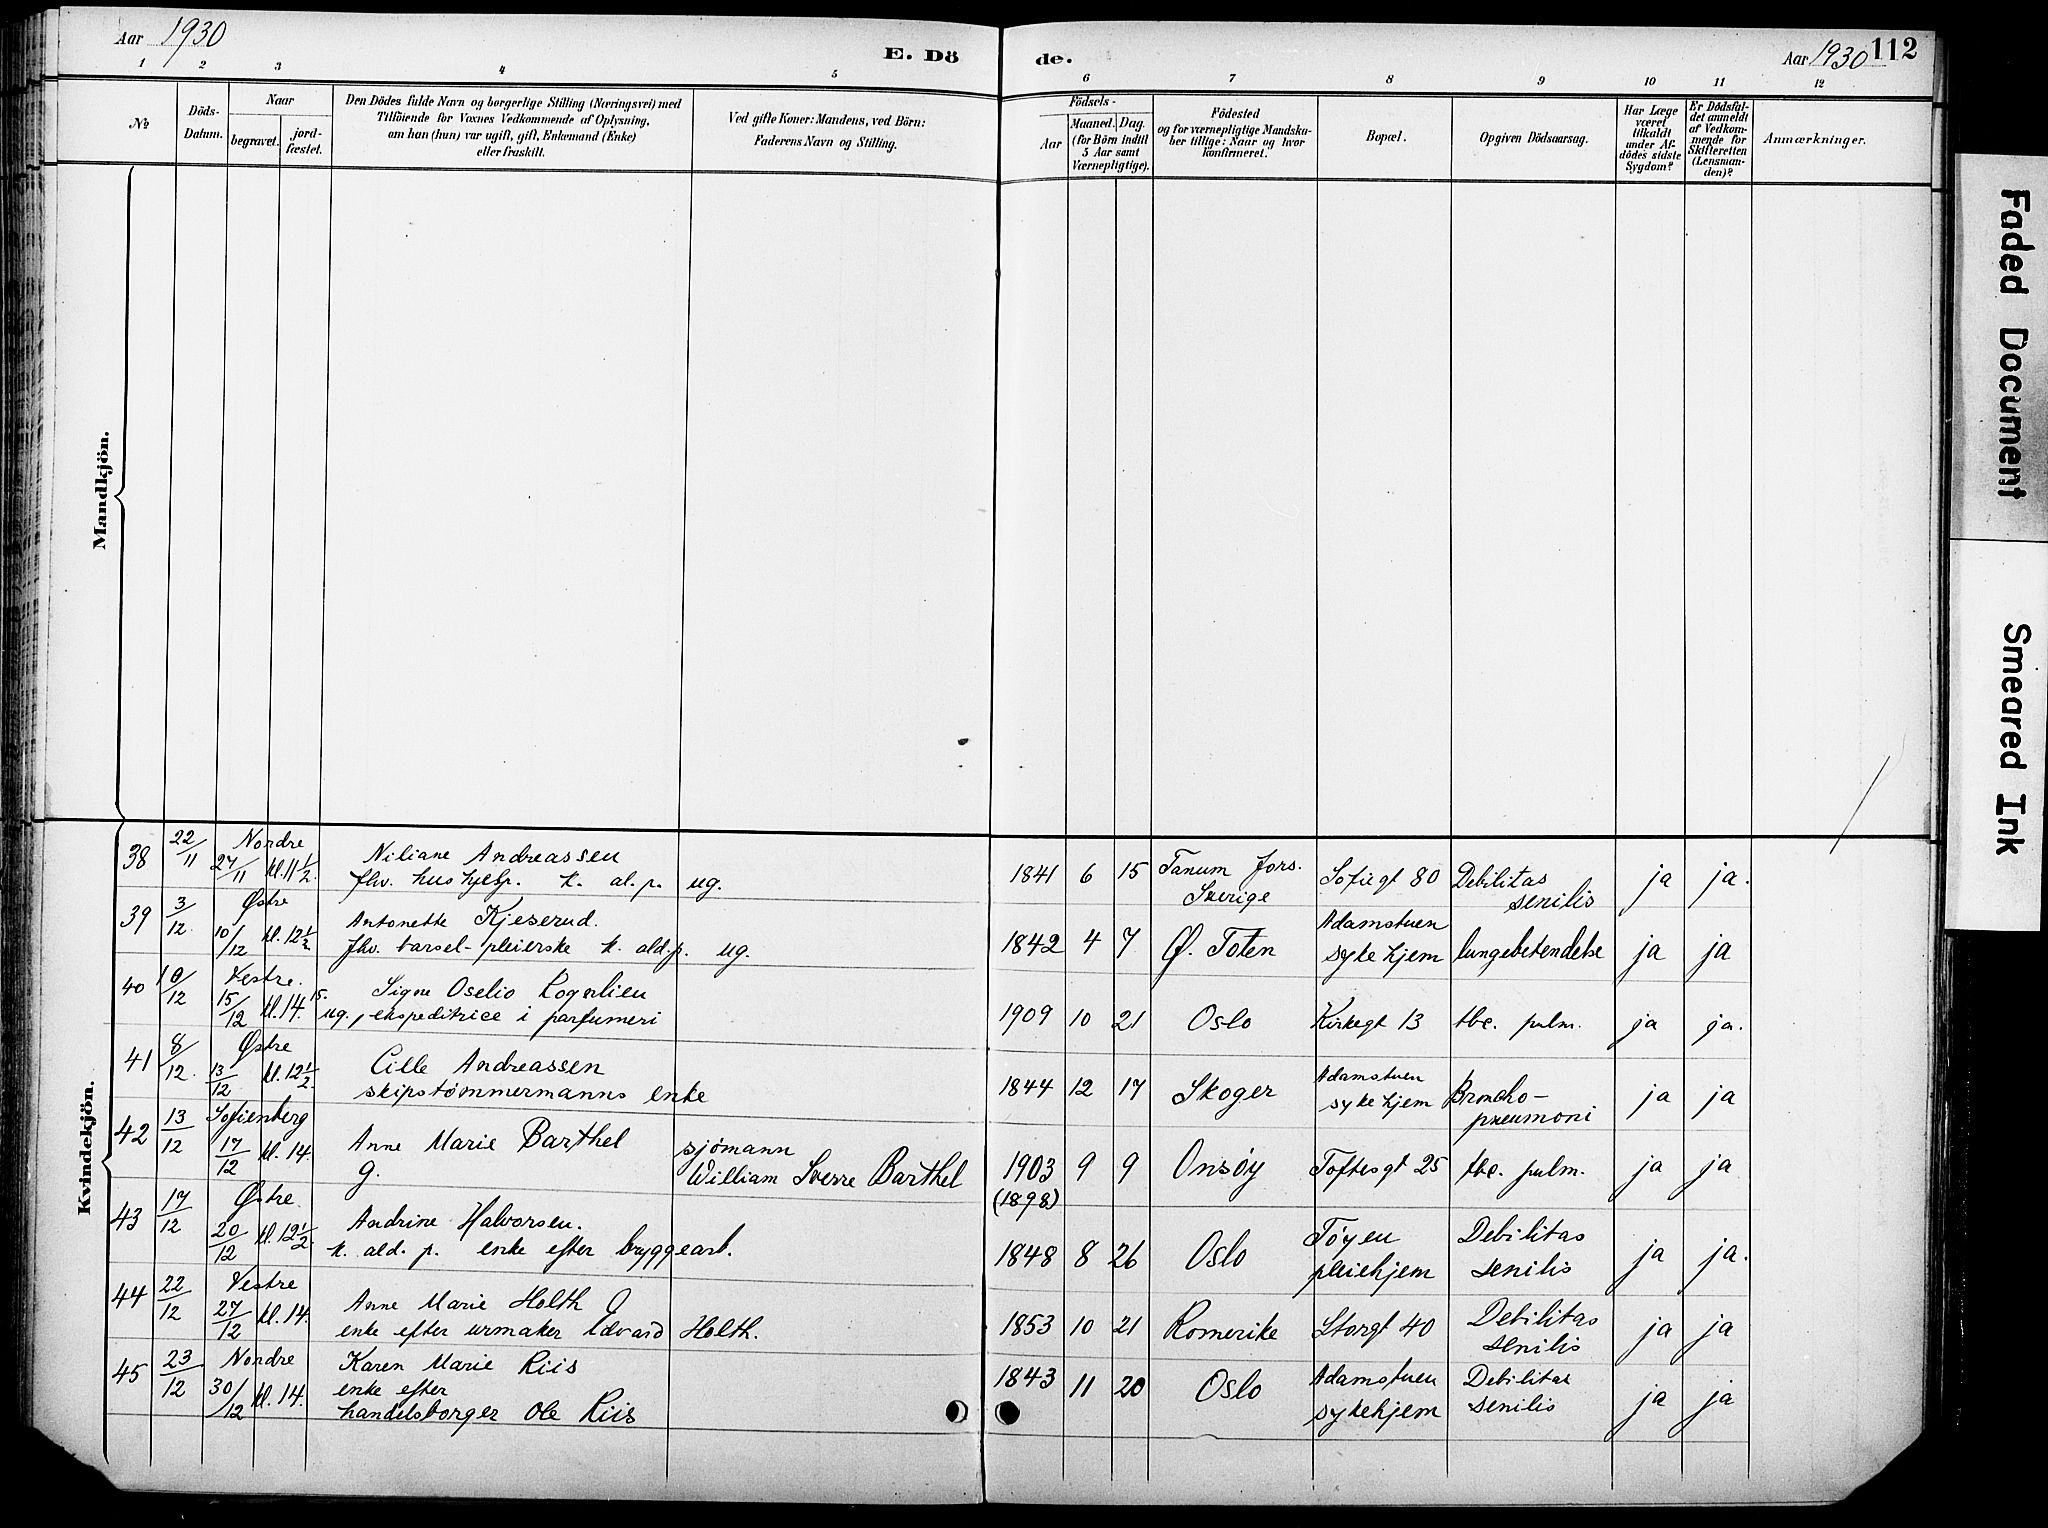 Aar 1930
E. Dö
de.
Aar 1930 112
1 2 3 4 5 6 7 8 9 10 11 12
No
Döds-
Datum.
Naar
begravet.
jord-
fæstet.
Den Dödes fulde Navn og borgerlige Stilling (Næringsvei) med
Tilföiende for Voxnes Vedkommende af Oplysning,
om han (hun) var ugift, gift, Enkemand (Enke)
eller fraskilt.
Ved gifte Koner: Mandens, ved Börn:
Faderens Navn og Stilling.
Födsels-
Aar
Maaned. Dag.
(for Börn indtil
5 Aar samt
Værnepligtige).
Födested
og for værnepligtige Mandska-
ber tillige: Naar og hvor
konfirmeret.
Bopæl.
Opgiven Dödsaarsag.
Har Læge
været
tilkaldt
under Af-
dödes sidste
Sygdom?
Er Dødsfal-
det anmeldt
af Vedkom-
mende for
Skifteretten
(Lensman-
den)?
Anmærkninger.
Mandkjön.
Kvindekjön.
38 22/11 Nordre
27/11 kl. 11 1/2
Niliane Andreassen
fhv. hushjelp. k. al. p. ug.
1841 6 15 Tanum fors. Sofiegt 80 Debilitas ja ja.
Sverige senilis
39 3/12. Østre
10/12 kl. 12 1/2
Antonette Kjeserud.
fhv. barsel-pleierske k. ald. p. ug.
1842 4 7 Ø. Toten Adamstuen
sykehjem lungebetendelse ja ja
40 10/12 Vestre.
15/12 kl. 14 15.
Signe Oselio Rognlien
ug., ekspeditrice i parfumeri
1909 10 21 Oslo Kirkegt 13 tbc. pulm. ja ja.
41 8/12. Østre
13/12 kl. 12 1/2.
Cille Andreassen
skipstømmermanns enke
1844 12 17 Skoger Adamstuen
sykehjem Broncho-
pneumoni ja ja
42 13/12 Sofienberg
17/12 kl. 14.
Anne Marie Barthel
g.
sjømann
William Sverre Barthel
1903 9 9 Onsøy Toftesgt 25 tbc. pulm. ja ja
(1898)
43 17/12 Østre.
20/12 kl. 12 1/2
Andrine Halvorsen.
k. ald. p. enke efter bryggearb.
1848 8 26 Oslo Tøyen
pleiehjem Debilitas
senilis ja ja.
44 22/12 Vestre
27/12 kl. 14.
Anne Marie Holth
enke efter urmaker Edvard Holth.
1853 10 21 Romerike Storgt 40 Debilitas
senilis ja ja
45 23/12 Nordre
30/12 kl. 14.
Karen Marie Riis
enke efter
handelsborger Ole Riis
1843 11 20 Oslo Adamstuen
sykehjem Debilitas
senilis ja ja
Faded Document
Smeared Ink